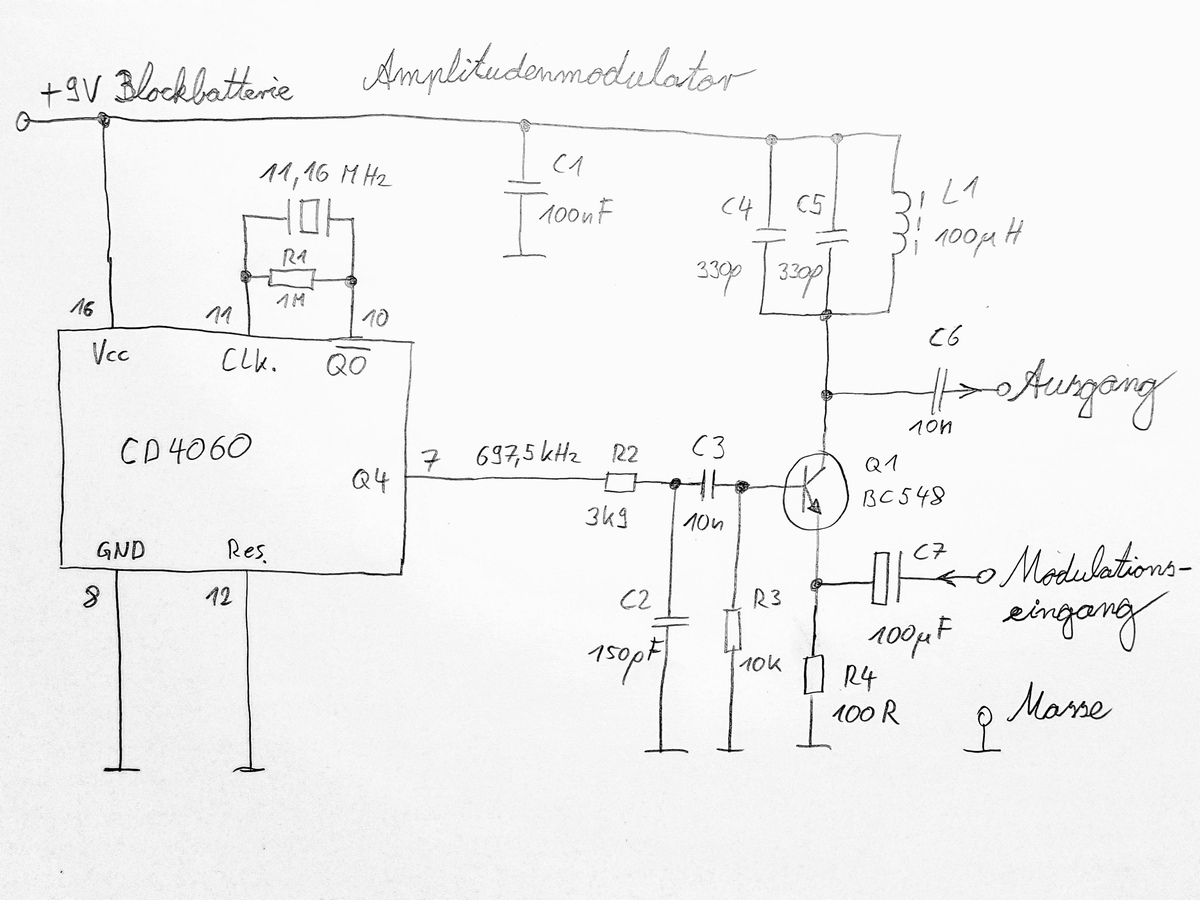 Amplitudenmodulator
+9V Blockbatterie
11,16 MHz
R1
1M
C1
100nF
C4
330p
C5
330p
L1
100µH
16
11
10
Vcc
Clk.
Q0
CD4060
Q4
7
697,5kHz
R2
3k9
C3
10n
C6
10n
Ausgang
Q1
BC548
GND
Res.
8
12
C2
150pF
R3
10k
C7
100µF
Modulations-
eingang
R4
100R
Masse